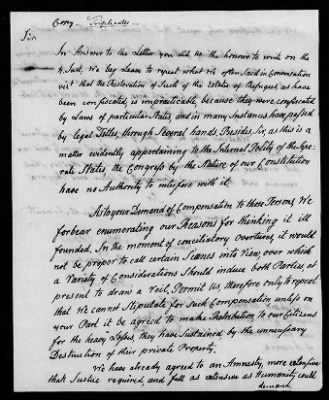 Copy. Triplicate.
Sir
In Answer to the Letter you did us the honour to write on the
4 Inst. We beg Leave to repeat what we often said in Conversation
viz: that the Restoration of Such of the Estates of Refugees, as have
been confiscated, is impracticable, because they were confiscated
by Laws of particular States, and in many Instances have passed
by legal Titles through several hands. Besides, Sir, as this is a
matter evidently appertaining to the Internal Polity of the Sepe-
rate States, the Congress by the Nature of our Constitution
have no Authority to interfere with it.
As to your Demand of Compensation to those Persons, We
forbear enumerating our Reasons for thinking it ill
founded. In the moment of conciliatory Overtures, it would
not be proper to call certain Scenes into View, over which
a Variety of Considerations should induce both Parties, at
present to draw a Veil. Permit Us, therefore only to repeat
that we cannot Stipulate for such Compensation unless on
your Part it be agreed to make Retribution to our Citizens
for the heavy Losses, they have Sustained by the unnecessary
Destruction of their private Property.
We have already agreed to an Amnesty, more extensive
that Justice required, and full as extensive as Humanity could
demand